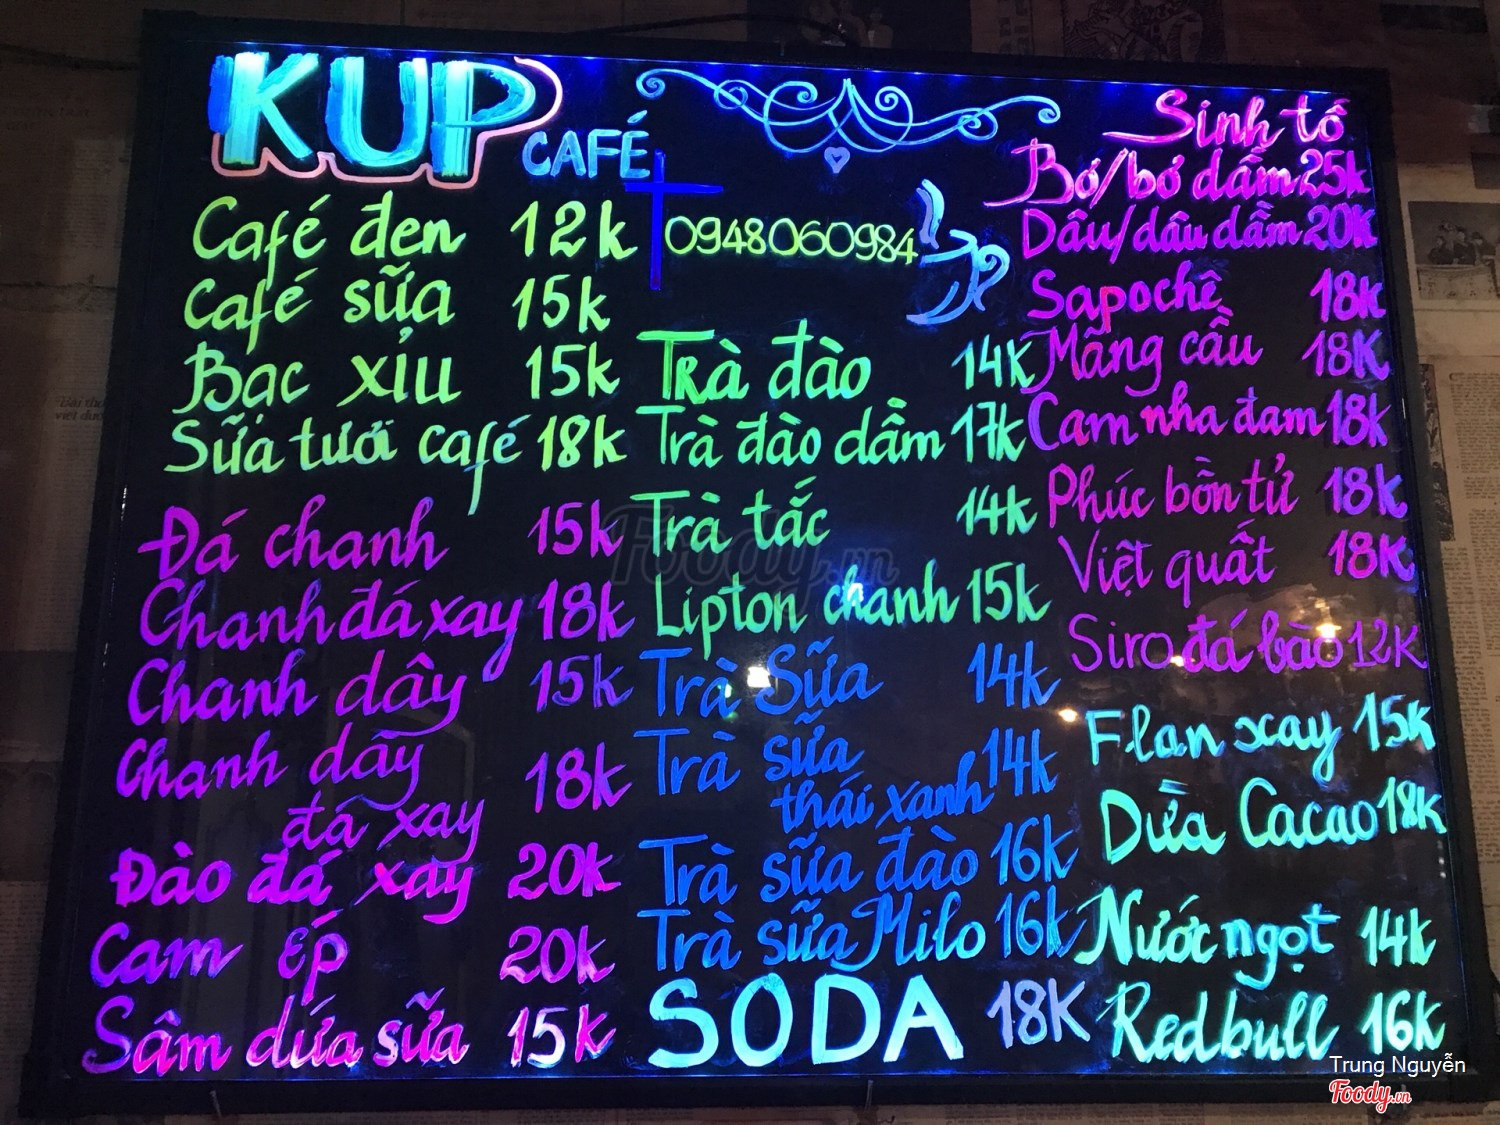 KUP CAFÉ
0948060984
Café đen 12k
Café sữa 15k
Bạc xỉu 15k
Sữa tươi café 18k
Đá chanh 15k
Chanh đá xay 18k
Chanh dây 15k
Chanh dây
đá xay 18k
Đào đá xay 20k
Cam ép 20k
Sâm dứa sữa 15k
Trà đào 14K
Trà đào dầm 17k
Trà tắc 14k
Lipton chanh 15k
Trà Sữa 14k
Trà sữa
thái xanh 14k
Trà sữa đào 16k
Trà sữa Milo 16k
SODA 18K
Sinh tố
Bơ/bơ dầm 25k
Dâu/dâu dầm 20K
Sapochê 18K
Mãng cầu 18K
Cam nha đam 18k
Phúc bồn tử 18k
Việt quất 18K
Siro đá bào 12K
Flan xay 15k
Dừa Cacao 18K
Nước ngọt 14k
Redbull 16k
Foody.vn
Trung Nguyễn
Foody.vn